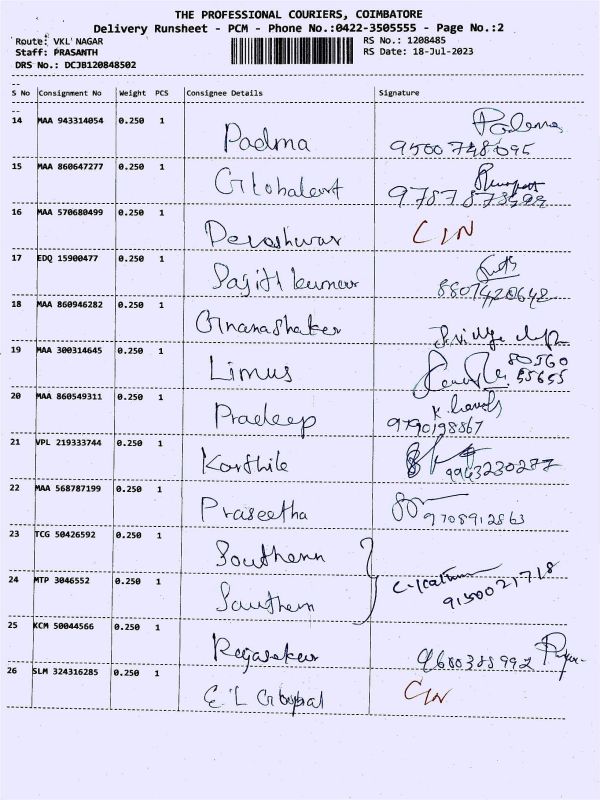 THE PROFESSIONAL COURIERS, COIMBATORE
Delivery Runsheet - PCM - Phone No.:0422-3505555 - Page No.:2
Route: VKL NAGAR RS No.: 1208485
Staff: PRASANTH RS Date: 18-Jul-2023
DRS No.: DCJB120848502
S No Consignment No Weight PCS Consignee Details Signature
14 MAA 943314054 0.250 1 Padma Padma
9500748095
15 MAA 860647277 0.250 1
9787873499
16 MAA 570680499 0.250 1 CIN
17 EDQ 15900477 0.250 1 Sajith kumar
8807420642
18 MAA 860946282 0.250 1 Gnanashaker
19 MAA 300314645 0.250 1 Limus 80560
55655
20 MAA 860549311 0.250 1 Pradeep
9790198867
21 VPL 219333744 0.250 1 Karthik 9963230277
22 MAA 568787199 0.250 1 Praseetha 9708912863
23 TCG 50426592 0.250 1 Southern
24 MTP 3046552 0.250 1 Southern 9150021718
25 KCM 50044566 0.250 1 Rajasekar 9680388992
26 SLM 324316285 0.250 1 E L Gopal CIN